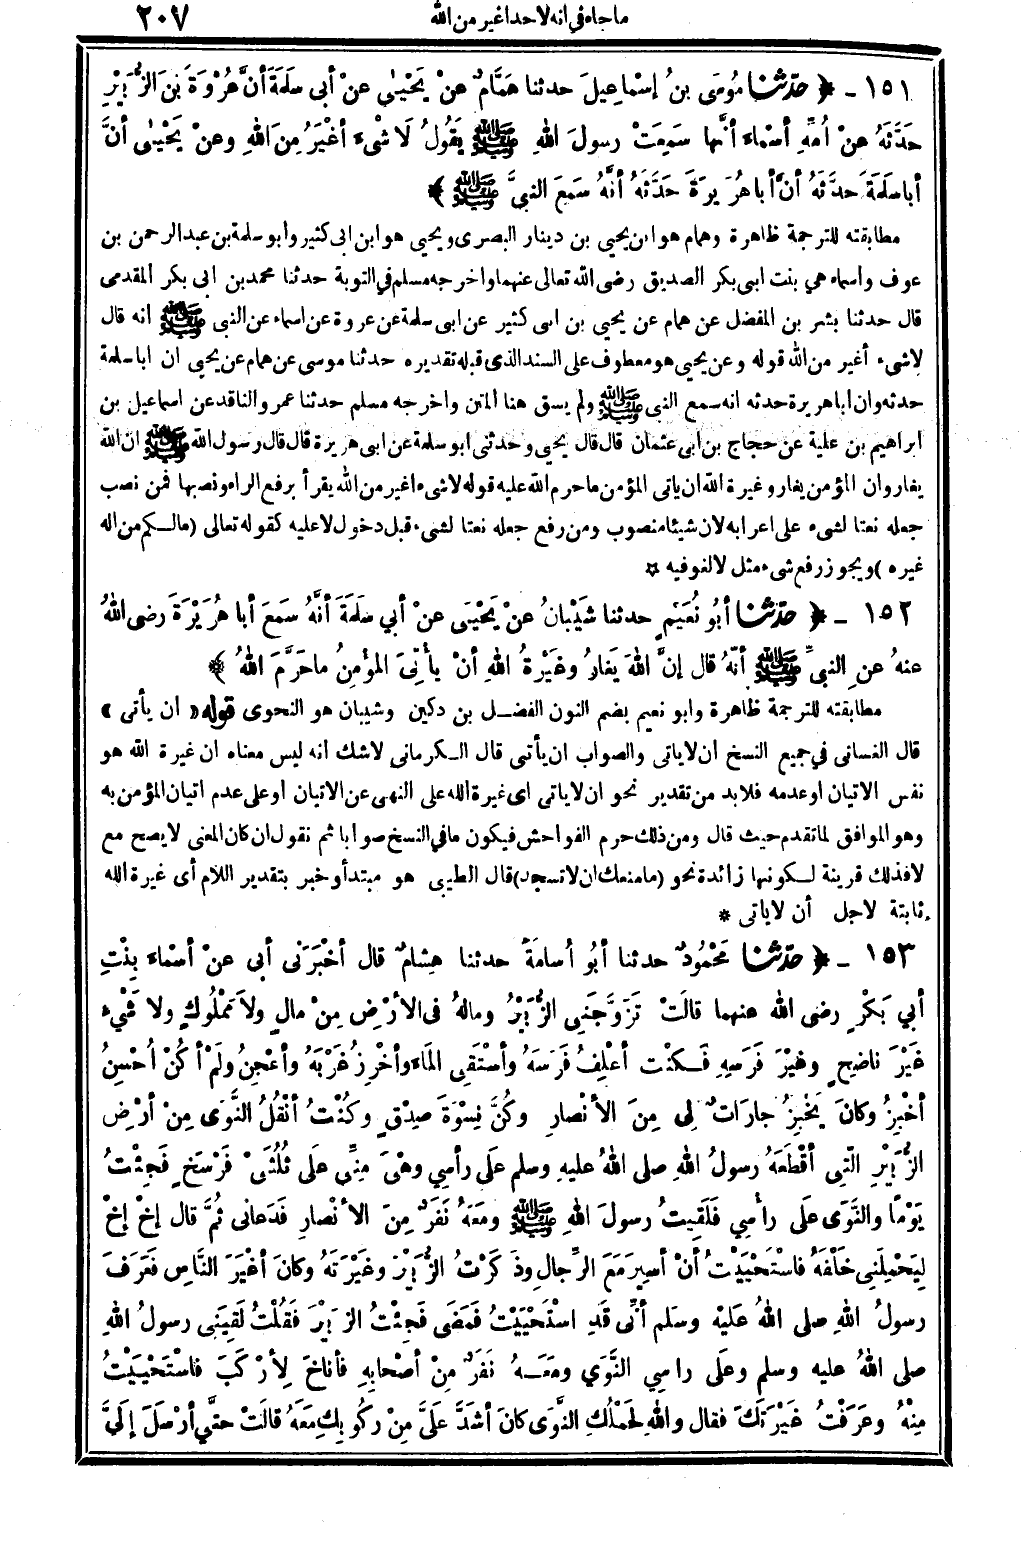 ما جاء في انه لا حد اغير من الله
٢٠٧
١٥١ - ﴿ حدّثنا مُوسَى بنُ إسْماعِيلَ حدثنا هَمَّامٌ عنْ يَحْيٰى عنْ أبى سَلَمَةَ أنَّ عُرْوَةَ بنَ الزُّبَيْرِ
حَدَّثَهُ عنْ أُمِّهِ أسْماءَ أنَّها سَمِعَتْ رسولَ اللهِ ﷺ يَقُولُ لَا شْىءَ أغْيَرُ مِنَ اللهِ وعنْ يَحْيٰى أنَّ
أبا سَلَمَةَ حدَّثَهُ أنَّ أبا هُرَيرَةَ حَدَّثَهُ أنَّهُ سَمِعَ النبىَّ ﷺ ﴾
مطابقته للترجمة ظاهرة وهمام هو ابن يحيى بن دينار البصرى ويحيى هو ابن ابى كثير وأبو سلمة بن عبد الرحمن بن
عوف وأسماء هي بنت ابى بكر الصديق رضى الله تعالى عنهما واخرجه مسلم في التوبة حدثنا محمد بن ابى بكر المقدمى
قال حدثنا بشر بن المفضل عن همام عن يحيى بن ابى كثير عن ابى سلمة عن عروة عن اسماء عن النبى ﷺ انه قال
لاشىء أغير من الله قوله وعن يحيى هو معطوف على السند الذى قبله تقديره حدثنا موسى عن همام عن يحيى ان ابا سلمة
حدثه وان أبا هريرة حدثه انه سمع النبى ﷺ ولم يسق هنا المتن واخرجه مسلم حدثنا عمرو الناقد عن اسماعيل بن
ابراهيم بن علية عن حجاج بن أبى عثمان قال قال يحيى وحدثنى ابو سلمة عن ابى هريرة قال قال رسول الله ﷺ ان الله
يغار وان المؤمن يغار وغيرة الله ان ياتى المؤمن ماحرم الله عليه قوله لاشىء اغير من الله يقرأ برفع الراء ونصبها فمن نصب
جعله نعتا لشىء على اعرابه لان شيئا منصوب ومن رفع جعله نعتا لشىء قبل دخول لا عليه كقوله تعالى (مالكم من اله
غيره) ويجوز رفع شىء مثل لالغو فيه ۞
١٥٢ - ﴿ حدّثنا أبُو نُعَيْمٍ حدثنا شَيْبانُ عنْ يَحْيَى عنْ أبي سَلَمَةَ أنَّهُ سَمِعَ أبا هُرَيْرَةَ رضى اللهُ
عنهُ عنِ النبىِّ ﷺ أنّهُ قال إنَّ اللهَ يَغارُ وغَيْرَةُ اللهِ أنْ يأْتِىَ المؤْمِنُ ماحَرَّمَ اللهُ ﴾
مطابقته للترجمة ظاهرة وابو نعيم بضم النون الفضل بن دكين وشيبان هو النحوى قوله «ان يأتى»
قال الغسانى في جميع النسخ ان لاياتى والصواب ان يأتى قال الكرمانى لاشك انه ليس معناه ان غيرة الله هو
نفس الاتيان او عدمه فلابد من تقدير نحو ان لاياتى اى غيرة الله على النهى عن الاتيان او على عدم اتيان المؤمن به
وهو الموافق لما تقدم حيث قال ومن ذلك حرم الفواحش فيكون مافى النسخ صوابا ثم نقول ان كان المعنى لايصح مع
لا فذلك قرينة لكونها زائدة نحو (مامنعك ان لاتسجد) قال الطيبى هو مبتدأ وخبر بتقدير اللام أى غيرة الله
ثابتة لاجل أن لاياتى *
١٥٣ - ﴿ حدّثنا مَحْمُودٌ حدثنا أبُو أُسامَةَ حدثنا هِشامٌ قال أخْبَرَنى أبى عنْ أسْماءَ بِنْتِ
أبي بَكْرٍ رضى الله عنهما قالَتْ تَزَوَّجَنِى الزُّبَيْرُ ومالهُ فى الأرْضِ مِنْ مالٍ ولاَ مَمْلُوكٍ ولا شَىْءٍ
غَيْرَ ناضِحٍ وغيْرَ فَرَسِهِ فَكُنْتُ أعْلِفُ فَرَسَهُ وأسْتَقِى الماءَ وأخْرِزُ غَرْبَهُ وأعْجِنُ ولَمْ أكُنْ أُحْسِنُ
أخْبِزُ وكانَ يَخْبِزُ جاراتٌ لِى مِنَ الأنْصارِ وكُنَّ نِسْوَةَ صِدْقٍ وكُنْتُ أنْقُلُ النَّوَى مِنْ أرْضِ
الزُّبَيْرِ الّتِى أقْطَعَهُ رسولُ اللهِ صلى اللهُ عليهِ وسلم علَى رأسِي وهْىَ مِنِّى علَى ثُلُثَىْ فَرْسَخٍ فَجِئْتُ
يَوْمًا والنَّوَى علَى رأسِي فَلَقِيتُ رسولَ اللهِ ﷺ ومَعَهُ نَفَرٌ مِنَ الأنْصارِ فَدَعانى ثُمَّ قال إخْ إخْ
لِيَحْمِلَنِى خَلْفَهُ فاسْتَحْيَيْتُ أنْ أسِيرَ مَعَ الرِّجالِ وذَكَرْتُ الزُّبَيْرَ وغَيْرَتَهُ وكانَ أغْيَرَ النَّاسِ فَعَرَفَ
رسولُ اللهِ صلى اللهُ عَلَيْهِ وسَلم أنِّى قَدِ اسْتَحْيَيْتُ فَمَضَى فَجِئْتُ الزُّبَيْرَ فَقُلْتُ لَقِيَنِى رسولُ اللهِ
صلى اللهُ عليه وسلم وعلَى راسِي النَّوَي ومَعَهُ نَفَرٌ مِنْ أصْحابِهِ فأناخَ لِأرْكَبَ فاسْتَحْيَيْتُ
مِنْهُ وعَرَفْتُ غَيْرَتَكَ فقال واللهِ لَحَمْلُكِ النَّوَى كانَ أشَدَّ عَلَىَّ مِنْ رُكُوبِكِ مَعَهُ قالَتْ حتَّى أرْسَلَ إلَىَّ